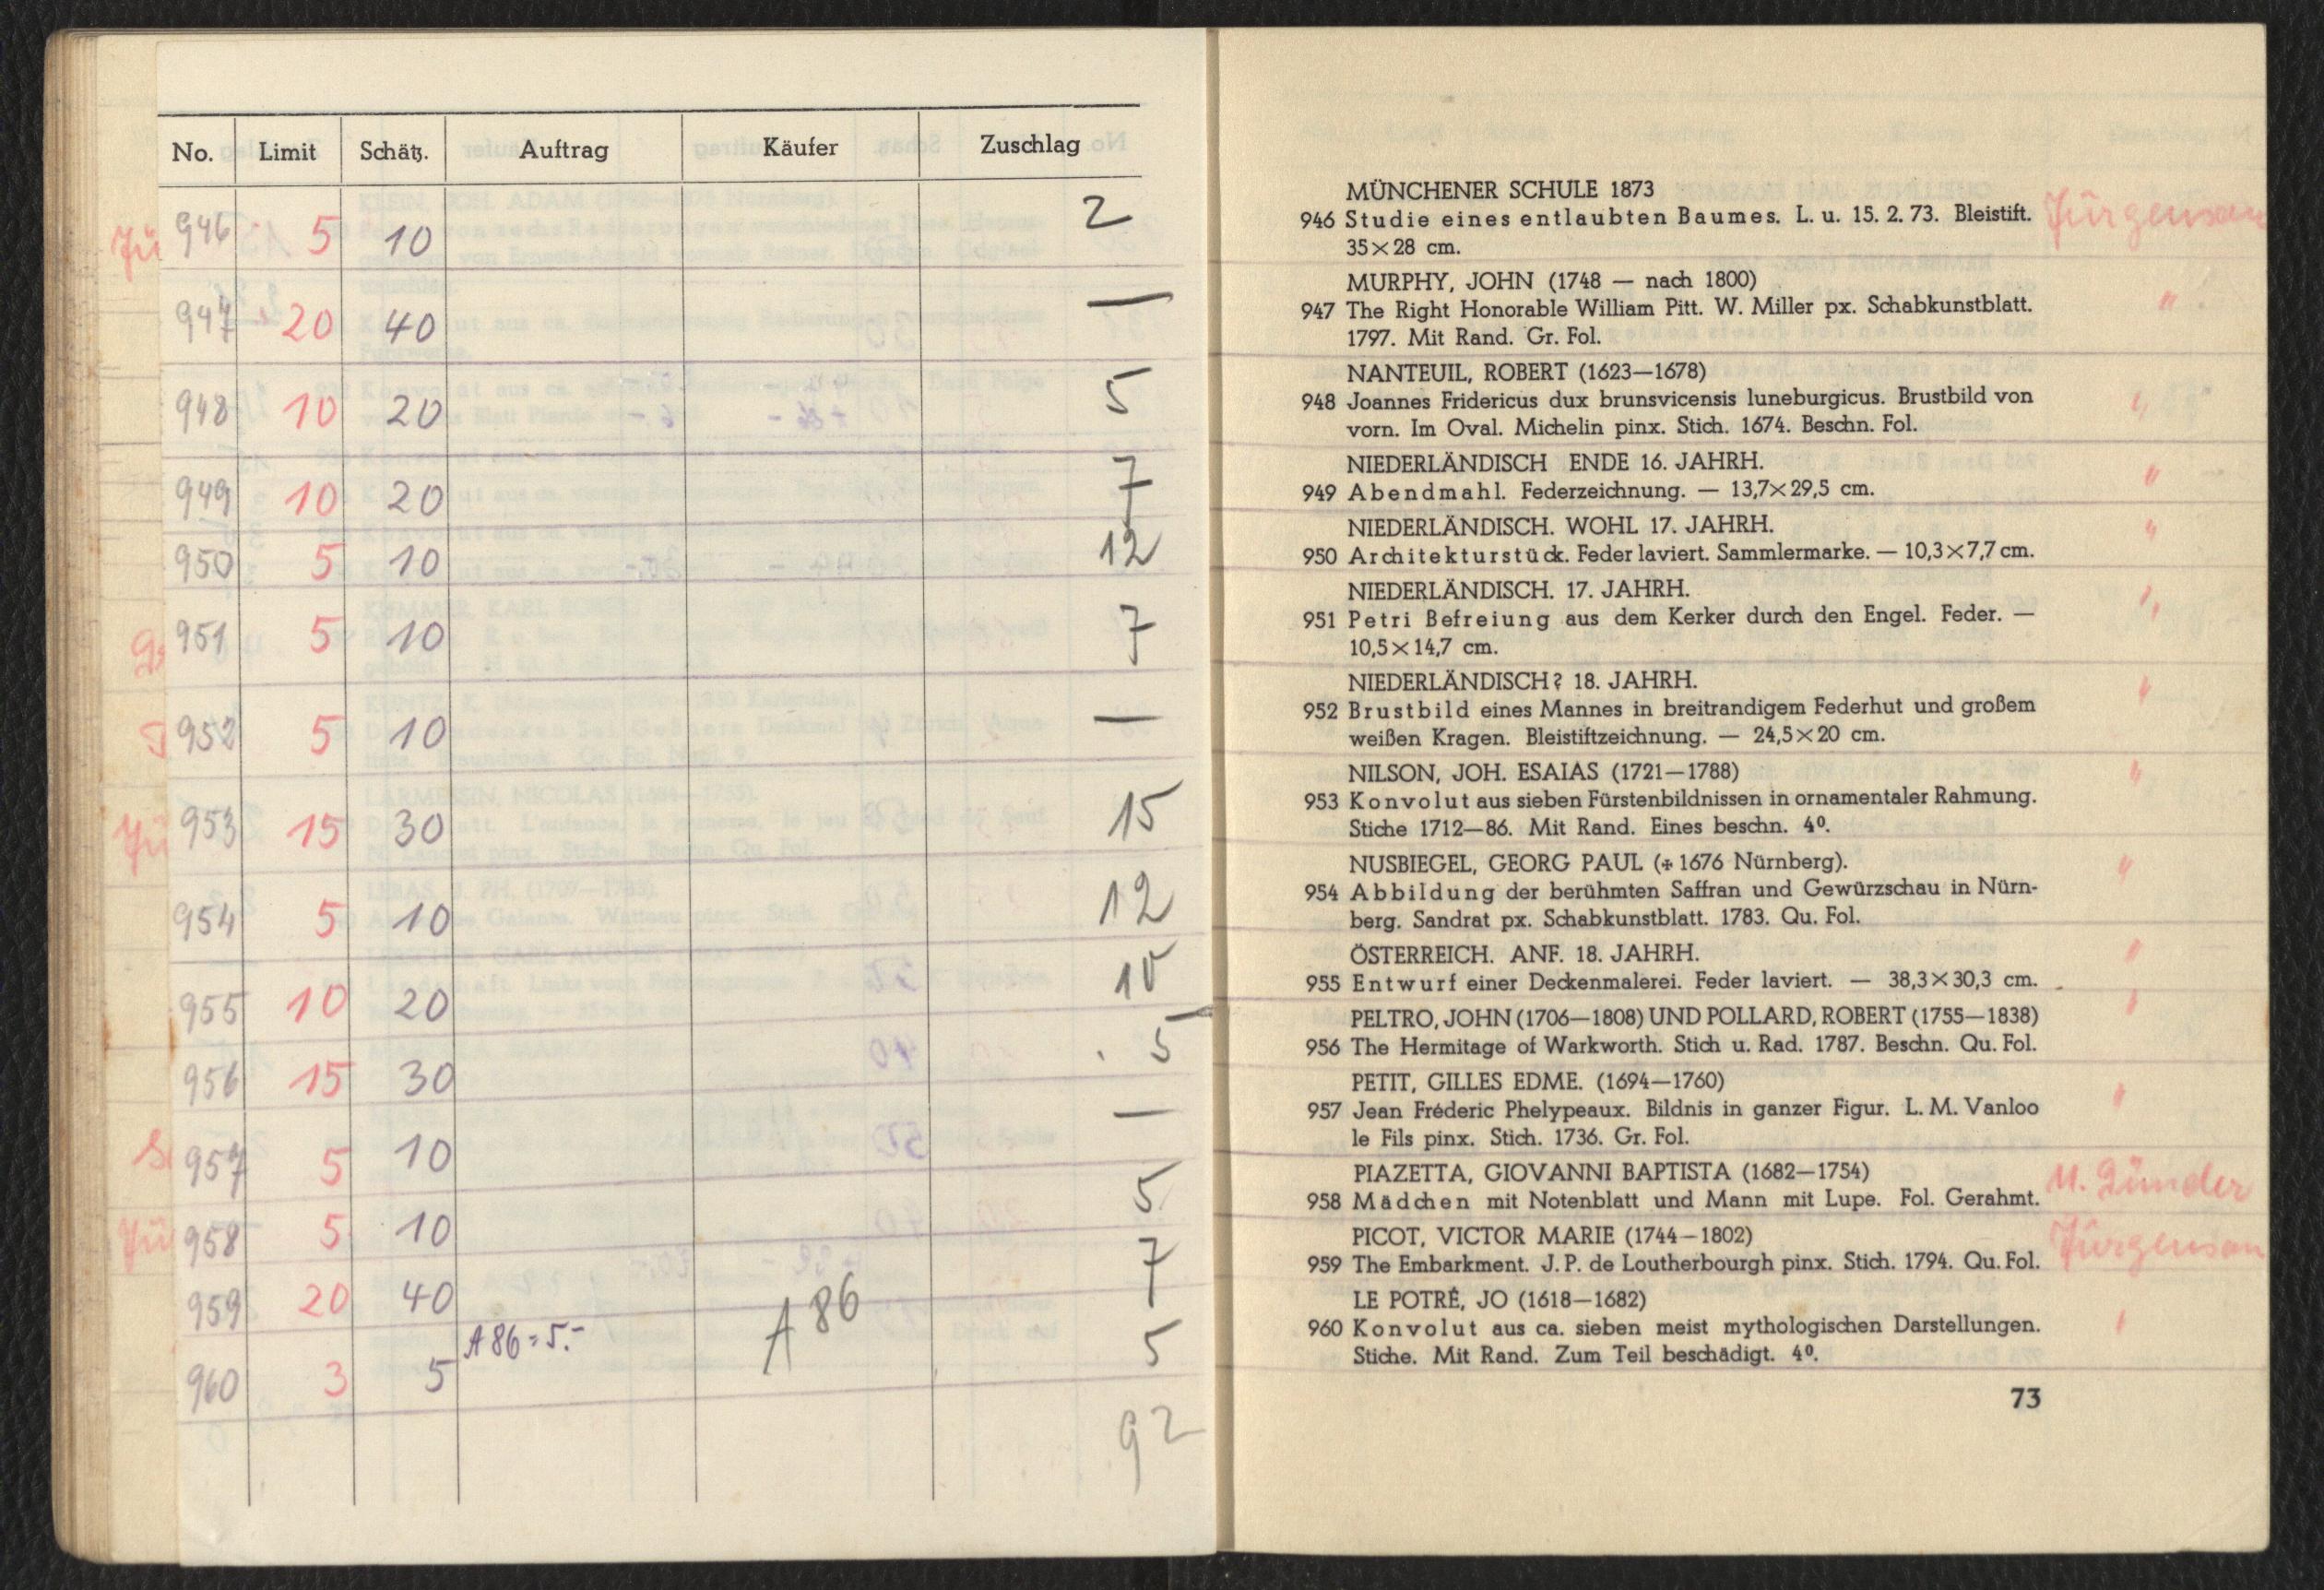 No. Limit Schätz. Auftrag Käufer Zuschlag
946 5 10 2
947 20 40 —
948 10 20 5
949 10 20 7
950 5 10 12
951 5 10 7
952 5 10 —
953 15 30 15
954 5 10 12
955 10 20 10
956 15 30 5
957 5 10 —
958 5 10 5
959 20 40 7
960 3 5 A 86 = 5.- A 86 5
92
MÜNCHENER SCHULE 1873
946 Studie eines entlaubten Baumes. L. u. 15. 2. 73. Bleistift. Jürgensen
35×28 cm.
MURPHY, JOHN (1748 — nach 1800)
947 The Right Honorable William Pitt. W. Miller px. Schabkunstblatt. "
1797. Mit Rand. Gr. Fol.
NANTEUIL, ROBERT (1623—1678)
948 Joannes Fridericus dux brunsvicensis luneburgicus. Brustbild von "
vorn. Im Oval. Michelin pinx. Stich. 1674. Beschn. Fol.
NIEDERLÄNDISCH ENDE 16. JAHRH.
949 Abendmahl. Federzeichnung. — 13,7×29,5 cm. "
NIEDERLÄNDISCH. WOHL 17. JAHRH.
950 Architekturstück. Feder laviert. Sammlermarke. — 10,3×7,7 cm. "
NIEDERLÄNDISCH. 17. JAHRH.
951 Petri Befreiung aus dem Kerker durch den Engel. Feder. — "
10,5×14,7 cm.
NIEDERLÄNDISCH? 18. JAHRH.
952 Brustbild eines Mannes in breitrandigem Federhut und großem "
weißen Kragen. Bleistiftzeichnung. — 24,5×20 cm.
NILSON, JOH. ESAIAS (1721—1788)
953 Konvolut aus sieben Fürstenbildnissen in ornamentaler Rahmung. "
Stiche 1712—86. Mit Rand. Eines beschn. 4⁰.
NUSBIEGEL, GEORG PAUL (✠ 1676 Nürnberg).
954 Abbildung der berühmten Saffran und Gewürzschau in Nürn- "
berg. Sandrat px. Schabkunstblatt. 1783. Qu. Fol.
ÖSTERREICH. ANF. 18. JAHRH.
955 Entwurf einer Deckenmalerei. Feder laviert. — 38,3×30,3 cm. "
PELTRO, JOHN (1706—1808) UND POLLARD, ROBERT (1755—1838)
956 The Hermitage of Warkworth. Stich u. Rad. 1787. Beschn. Qu. Fol. "
PETIT, GILLES EDME. (1694—1760)
957 Jean Fréderic Phelypeaux. Bildnis in ganzer Figur. L. M. Vanloo "
le Fils pinx. Stich. 1736. Gr. Fol.
PIAZETTA, GIOVANNI BAPTISTA (1682—1754)
958 Mädchen mit Notenblatt und Mann mit Lupe. Fol. Gerahmt.
PICOT, VICTOR MARIE (1744—1802)
959 The Embarkment. J. P. de Loutherbourgh pinx. Stich. 1794. Qu. Fol. Jürgensen
LE POTRÉ, JO (1618—1682)
960 Konvolut aus ca. sieben meist mythologischen Darstellungen. "
Stiche. Mit Rand. Zum Teil beschädigt. 4⁰.
73